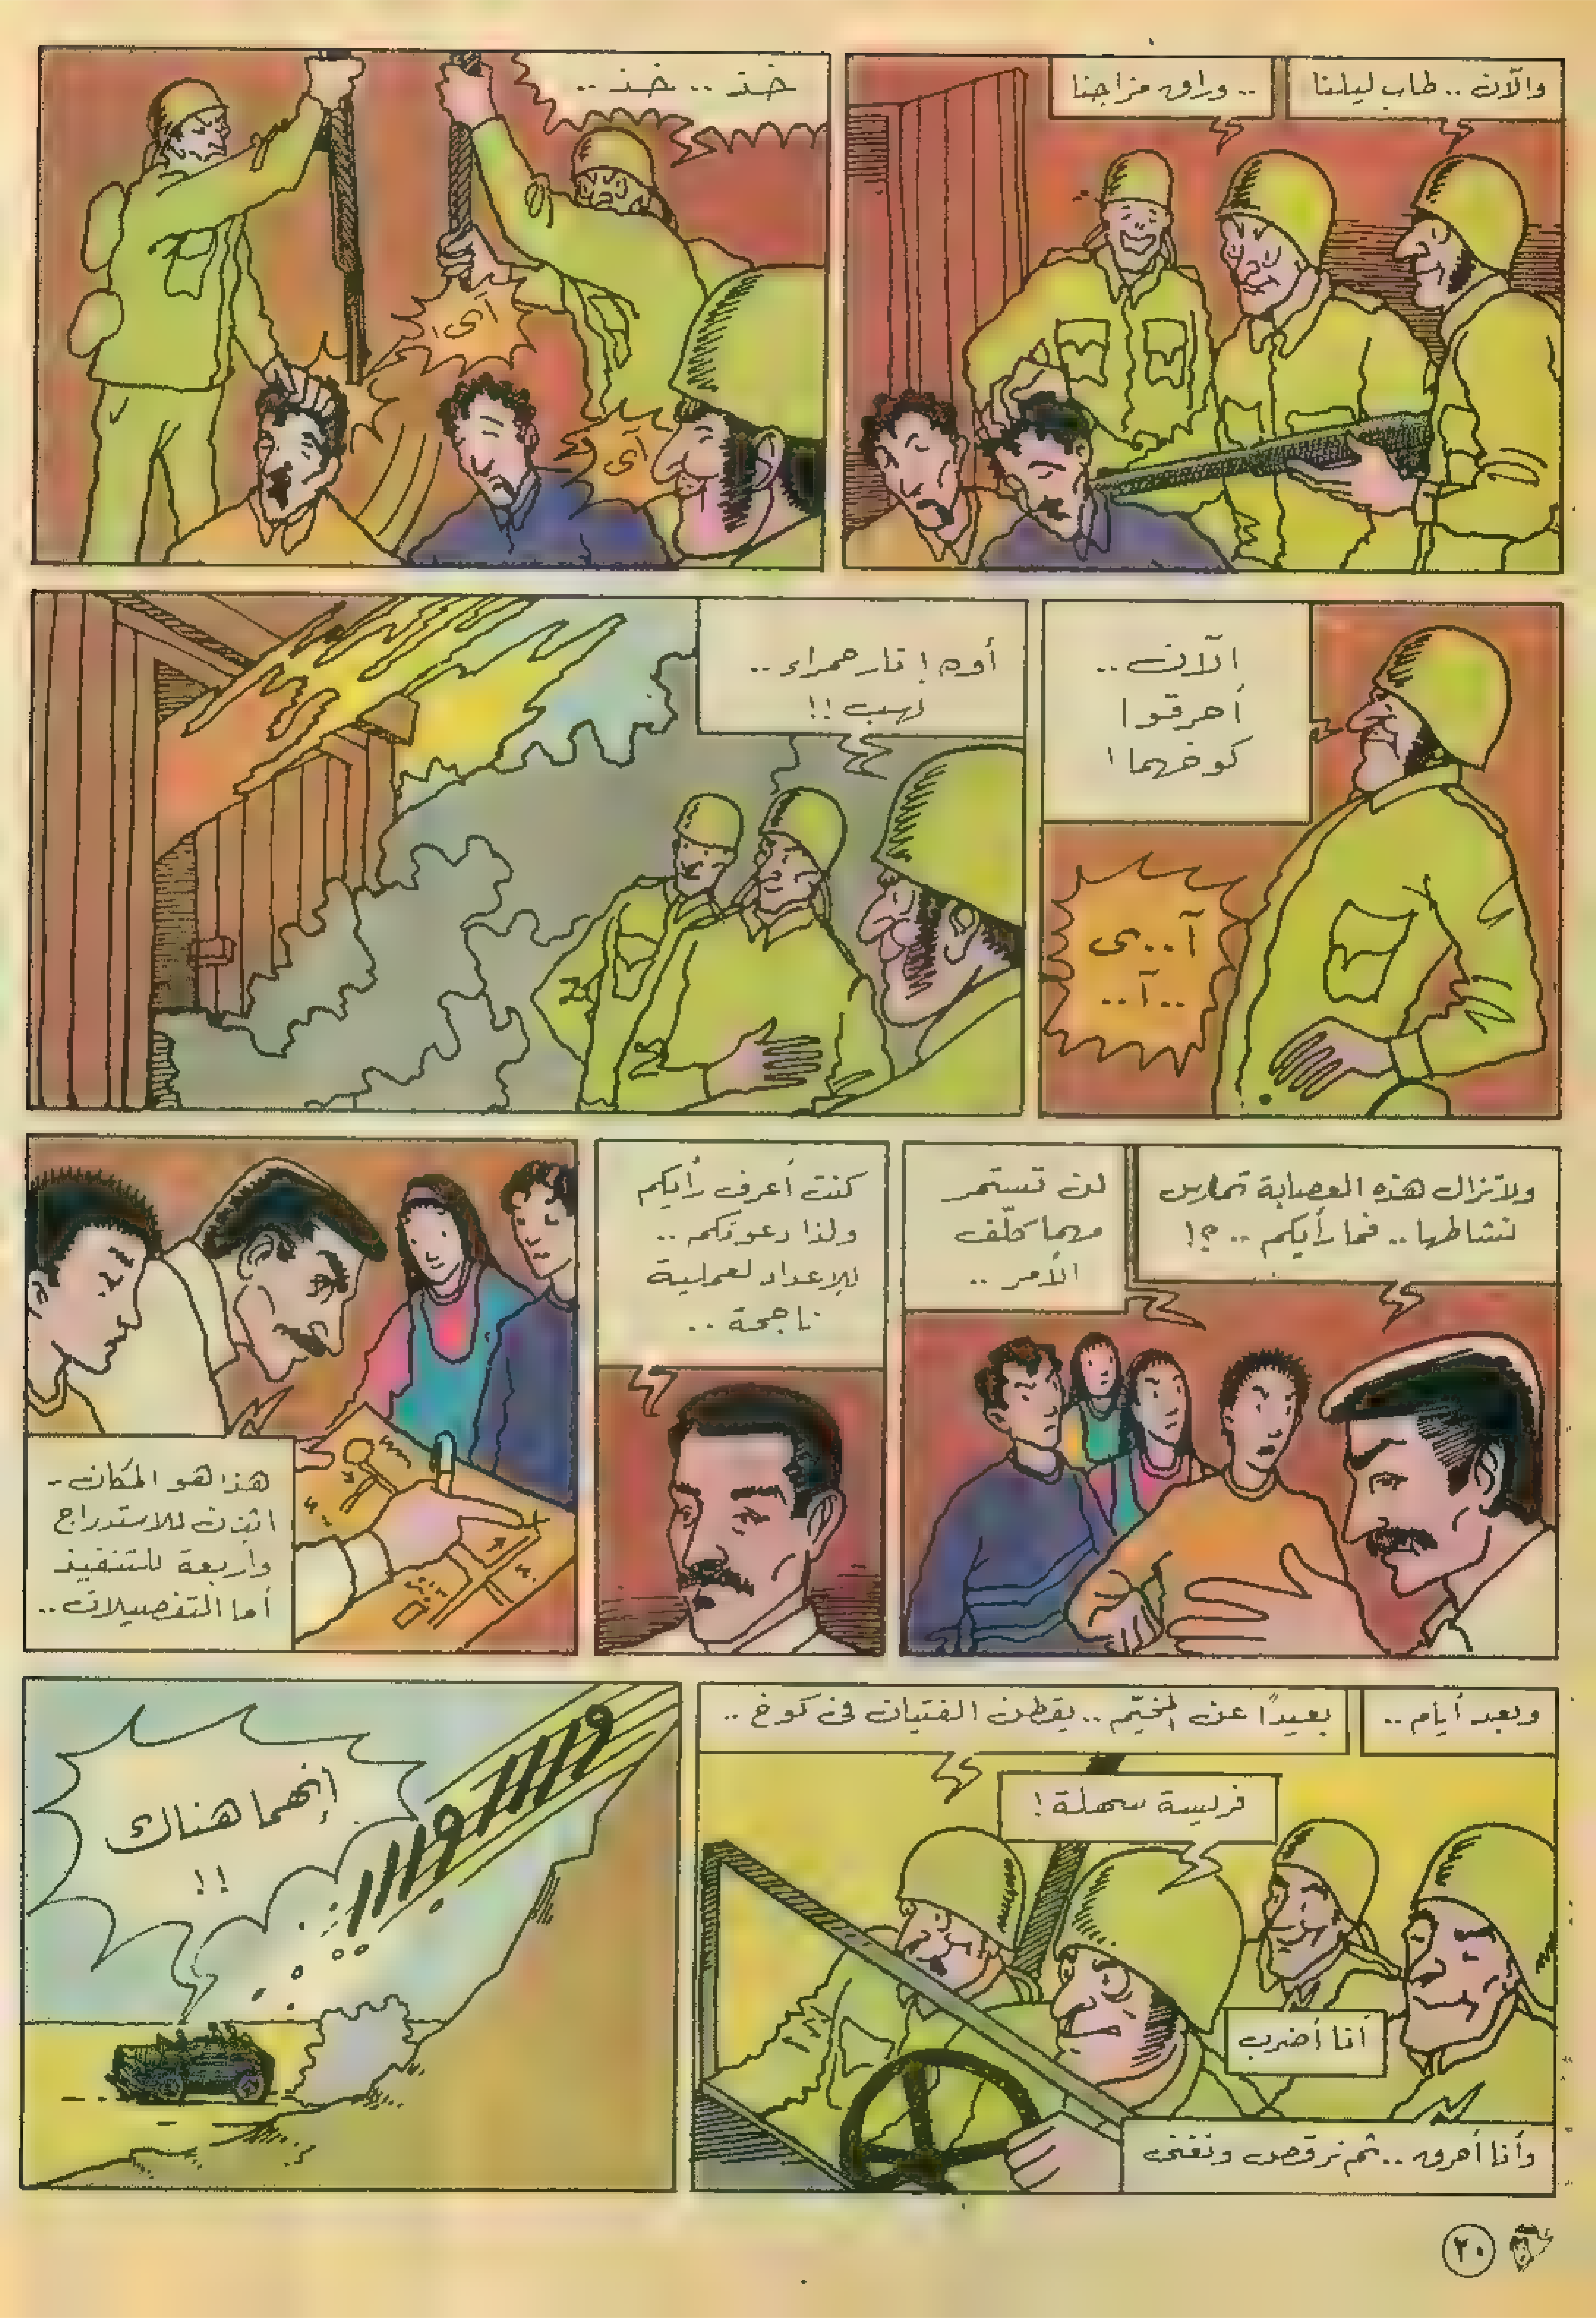 والآن .. طاب ليلنا
.. وراق مزاجنا
خذ .. خذ ..
آى!
آى
الآن ..
أحرقوا
كوخهما!
آ..ى
..آ..
أوه! نار حمراء ..
لهب !!
ولاتزال هذه العصابة تمارس
نشاطها .. فما رأيكم .. ؟!
لن تستمر
مهما كلّف
الأمر ..
كنت أعرف رأيكم
ولذا دعوتكم ..
للإعداد لعملية
ناجحة ..
هذا هو المكان -
اثنان للاستدراج
وأربعة للتنفيذ
أما التفصيلات ..
وبعد أيام ..
بعيدًا عن المخيّم .. يقطن الفتيان فى كوخ ..
فريسة سهلة !
أنا أضرب
وأنا أحرق .. ثم نرقص ونغنى
وررروررر
إنهما هناك
!!
٢٠